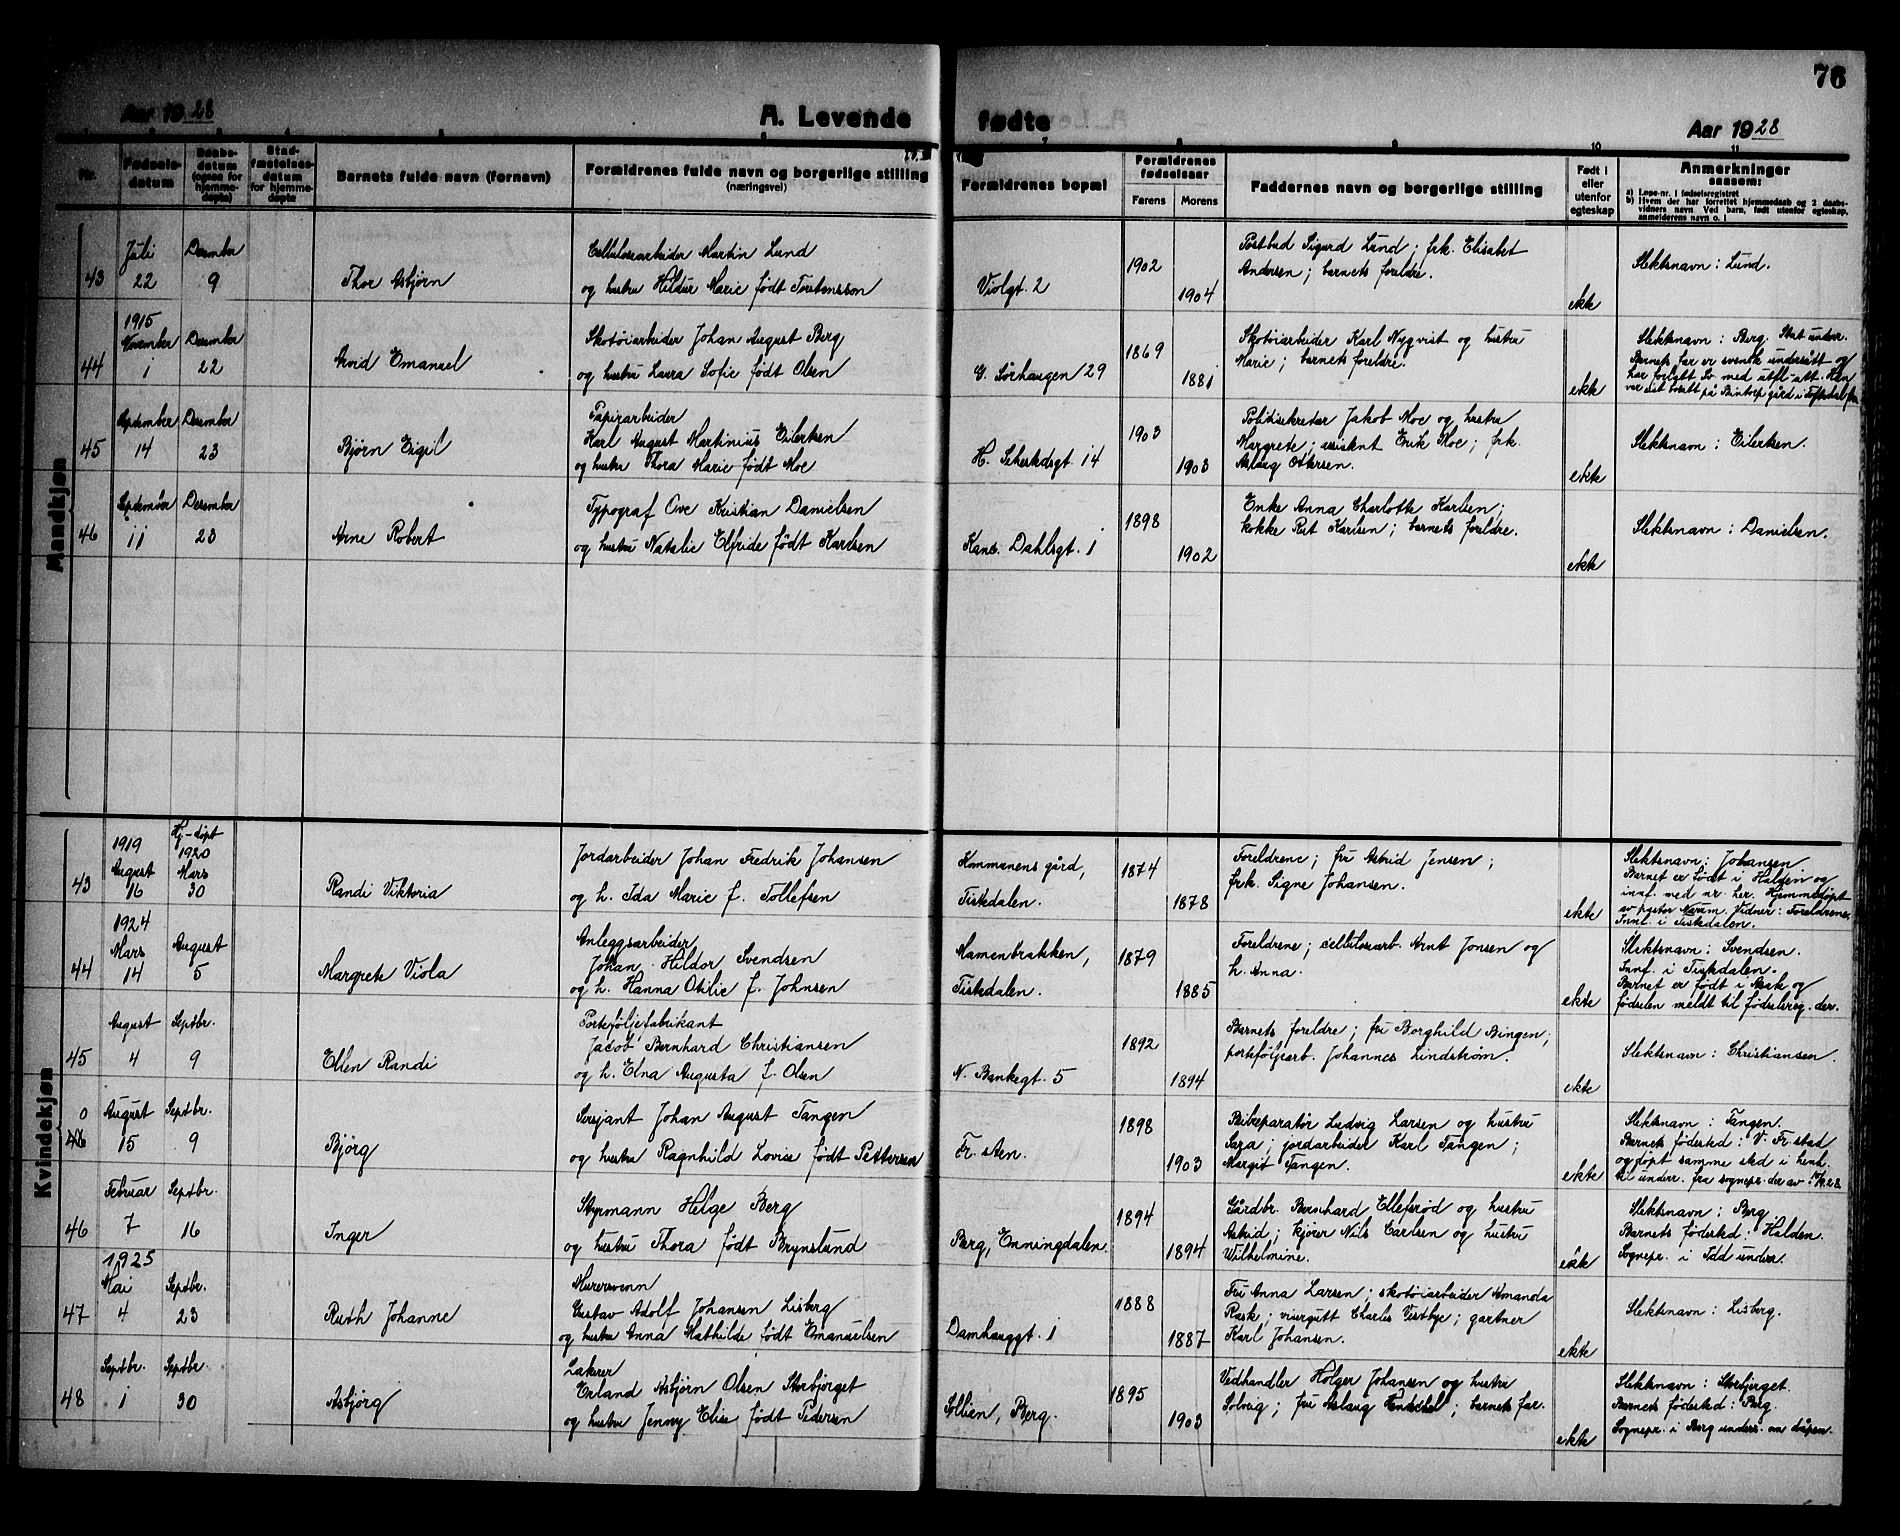 76
Aar 1928
A. Levende fødte
Aar 1928
Nr.
Fødsels-
datum
Daabs-
datum
(ogsaa for
hjemme-
døpte)
Stad-
fæstelses-
datum
for hjemme-
døpte
Barnets fulde navn (fornavn)
Forældrenes fulde navn og borgerlige stilling
(næringsvei)
Forældrenes bopæl
Forældrenes
fødselsaar
Farens
Morens
Faddernes navn og borgerlige stilling
10
Født i
eller
utenfor
egteskap
11
Anmerkninger
saasom:
a) Løpe-nr. i fødselsregistret
b) Hvem der har forrettet hjemmedaab og 2 daabs-
vidners navn. Ved barn, født utenfor egteskap,
anmelderens navn o. l.
Mandkjøn
43
Juli
22
Desember
9
Thor Asbjørn
Cellulosearbeider Martin Lund
og hustru Hildur Marie født Torstensson
Violgt. 2
1902
1904
Postbud Sigurd Lund; frk. Elisabet
Andersen; barnets foreldre.
ekte
Slektsnavn: Lund.
44
1915
November
1
Desember
22
Arvid Emanuel
Skotøiarbeider Johan August Berg
og hustru Laura Sofie født Olsen
G. Sørhaugen 29
1869
1881
Skotøiarbeider Karl Nyqvist og hustru
Marie; barnets foreldre.
ekte
Slektsnavn: Berg.
Barnets far er svensk undersått og
har forlatt Sv. med utfl. att. Han
45
September
14
Desember
23
Bjørn Eigil
Papirarbeider
Karl August Martinius Eilertsen
og hustru Thora Marie født Moe
H. Schestedsgt. 14
1903
1903
Politisekretær Jakob Moe og hustru
Margrete; assistent Erik Moe; frk.
Aslaug Ottersen.
ekte
Slektsnavn: Eilertsen.
46
September
11
Desember
23
Arne Robert
Typograf Ove Kristian Danielsen
og hustru Natalie Elfride født Karlsen
Kanc. Dahlsgt. 1
1898
1902
Enke Anna Charlotte Karlsen;
kokke Rut Karlsen; barnets foreldre.
ekte
Slektsnavn: Danielsen.
Kvindekjøn
43
1919
August
16
Hj-døpt
1920
Mars
30
Randi Viktoria
Jordarbeider Johan Fredrik Johansen
og h. Ida Marie f. Tollefsen
Kommunens gård,
Tistedalen.
1874
1878
Foreldrene; fru Astrid Jensen;
frk. Signe Johansen.
ekte
Slektsnavn: Johansen
Barnet er født i Halden og
innf. med nr. her. Hjemmedøpt
av pastor Narum. Vidner: Foreldrene.
Innf. i Tistedalen.
44
1924
Mars
14
August
5
Margrete Viola
Anleggsarbeider
Johan Hildor Svendsen
og h. Hanna Otilie f. Johnsen
Mamenbrakken,
Tistedalen.
1879
1885
Foreldrene; cellulosearb. Arnt Jonsen og
h. Anna.
ekte
Slektsnavn: Svendsen.
Innf. i Tistedalen.
Barnet er født i Asak og
fødselen meldt til fødselsreg. der.
45
August
4
Septbr.
9
Ellen Randi
Porteføljefabrikant
Jacob Bernhard Christiansen
og h. Elna Augusta f. Olsen
N. Bankegt. 5
1892
1894
Barnets foreldre; fru Borghild Bingen;
porteføljearb. Johannes Lindstrøm.
ekte
Slektsnavn: Christiansen.
0
46
August
15
Septbr.
9
Bjørg
Sersjant Johan August Tangen
og hustru Ragnhild Lovise født Pettersen
Fr. sten.
1898
1903
Ludvig Larsen og hustru
Sara; jordarbeider Karl Tangen;
Margit Tangen.
ekte
Slektsnavn: Tangen.
Barnets fødested: V. Fr. stad
og døpt samme sted i henh.
til underr. fra sognepr. der av
46
Februar
7
Septbr.
16
Inger
Styrmann Helge Berg
og hustru Thora født Brynslund
Berg, Enningdalen.
1894
1894
Gårdbr. Bernhard Ellefsrød og hustru
Astrid; kjører Nils Carlsen og hustru
Wilhelmine.
ekte
Slektsnavn: Berg.
Barnets fødested: Halden.
Sognepr. i Idd underr.
47
1925
Mai
4
Septbr.
23
Ruth Johanne
Murersvenn
Gustav Adolf Johansen Lisberg
og hustru Anna Mathilde født Emanuelsen
Damhauggt. 1
1888
1887
Fru Anna Larsen; skotøiarbeider Amanda
Rask; visergutt Charles Vestbye; gartner
Karl Johansen.
ekte
Slektsnavn: Lisberg.
48
Septbr.
1
Septbr.
30
Asbjørg
Lakerer
Erland Asbjørn Olsen Storbjerget
og hustru Jenny Elise født Pedersen
Sollien, Berg.
1895
1903
Vedhandler Holger Johansen og hustru
Solveig; fru Aslaug; barnets far.
ekte
Slektsnavn: Storbjerget.
Barnets fødested: Berg.
Sognepr. i Berg underr. om dåpen.